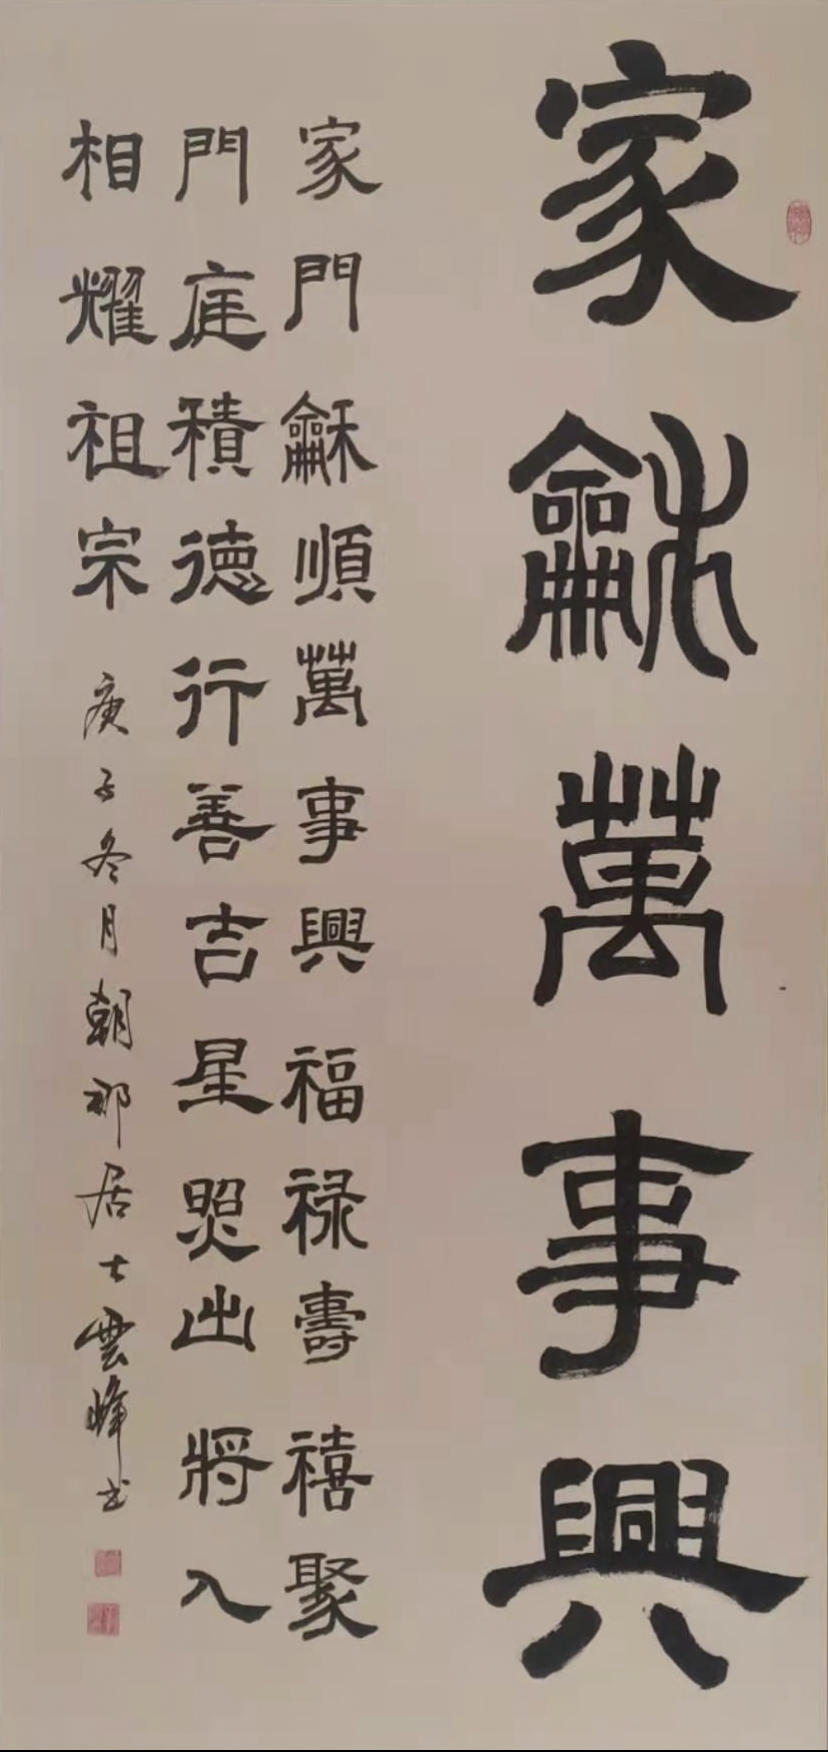 家龢萬事興
家門龢順萬事興福禄壽禧聚
門庭積德行善吉星照出將入
相耀祖宗 庚子冬月朝那居士雲峰书